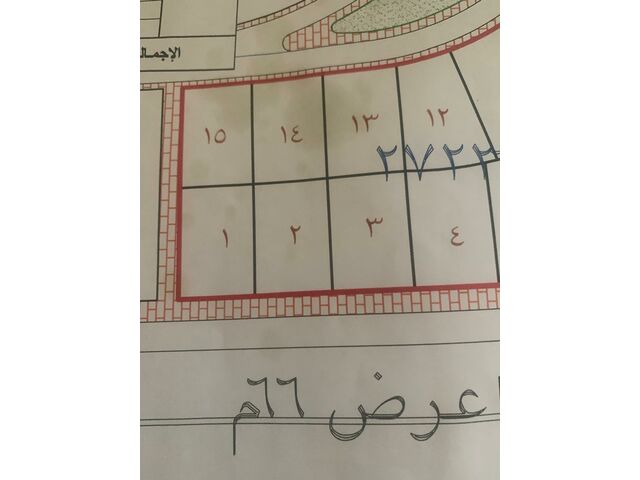 الإجمال
١٥ ١٤ ١٣ ١٢
٢٧٢٢
١ ٢ ٣ ٤
عرض ٦٦م